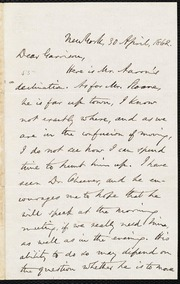 New York, 30 April, 1862.
Dear Garrison,
Here is Mr. Aaron's
declination. As for Mr. Sloane,
he is far up town, I know
not exactly where, and as we
are in the confusion of moving,
I do not see how I can spend
time to hunt him up. I have
seen Dr. Cheever, and he en-
courages me to hope that he
will speak at the morning
meeting, if we really need him,
as well as in the evening. His
ability to do so may depend on
the question whether he is to make